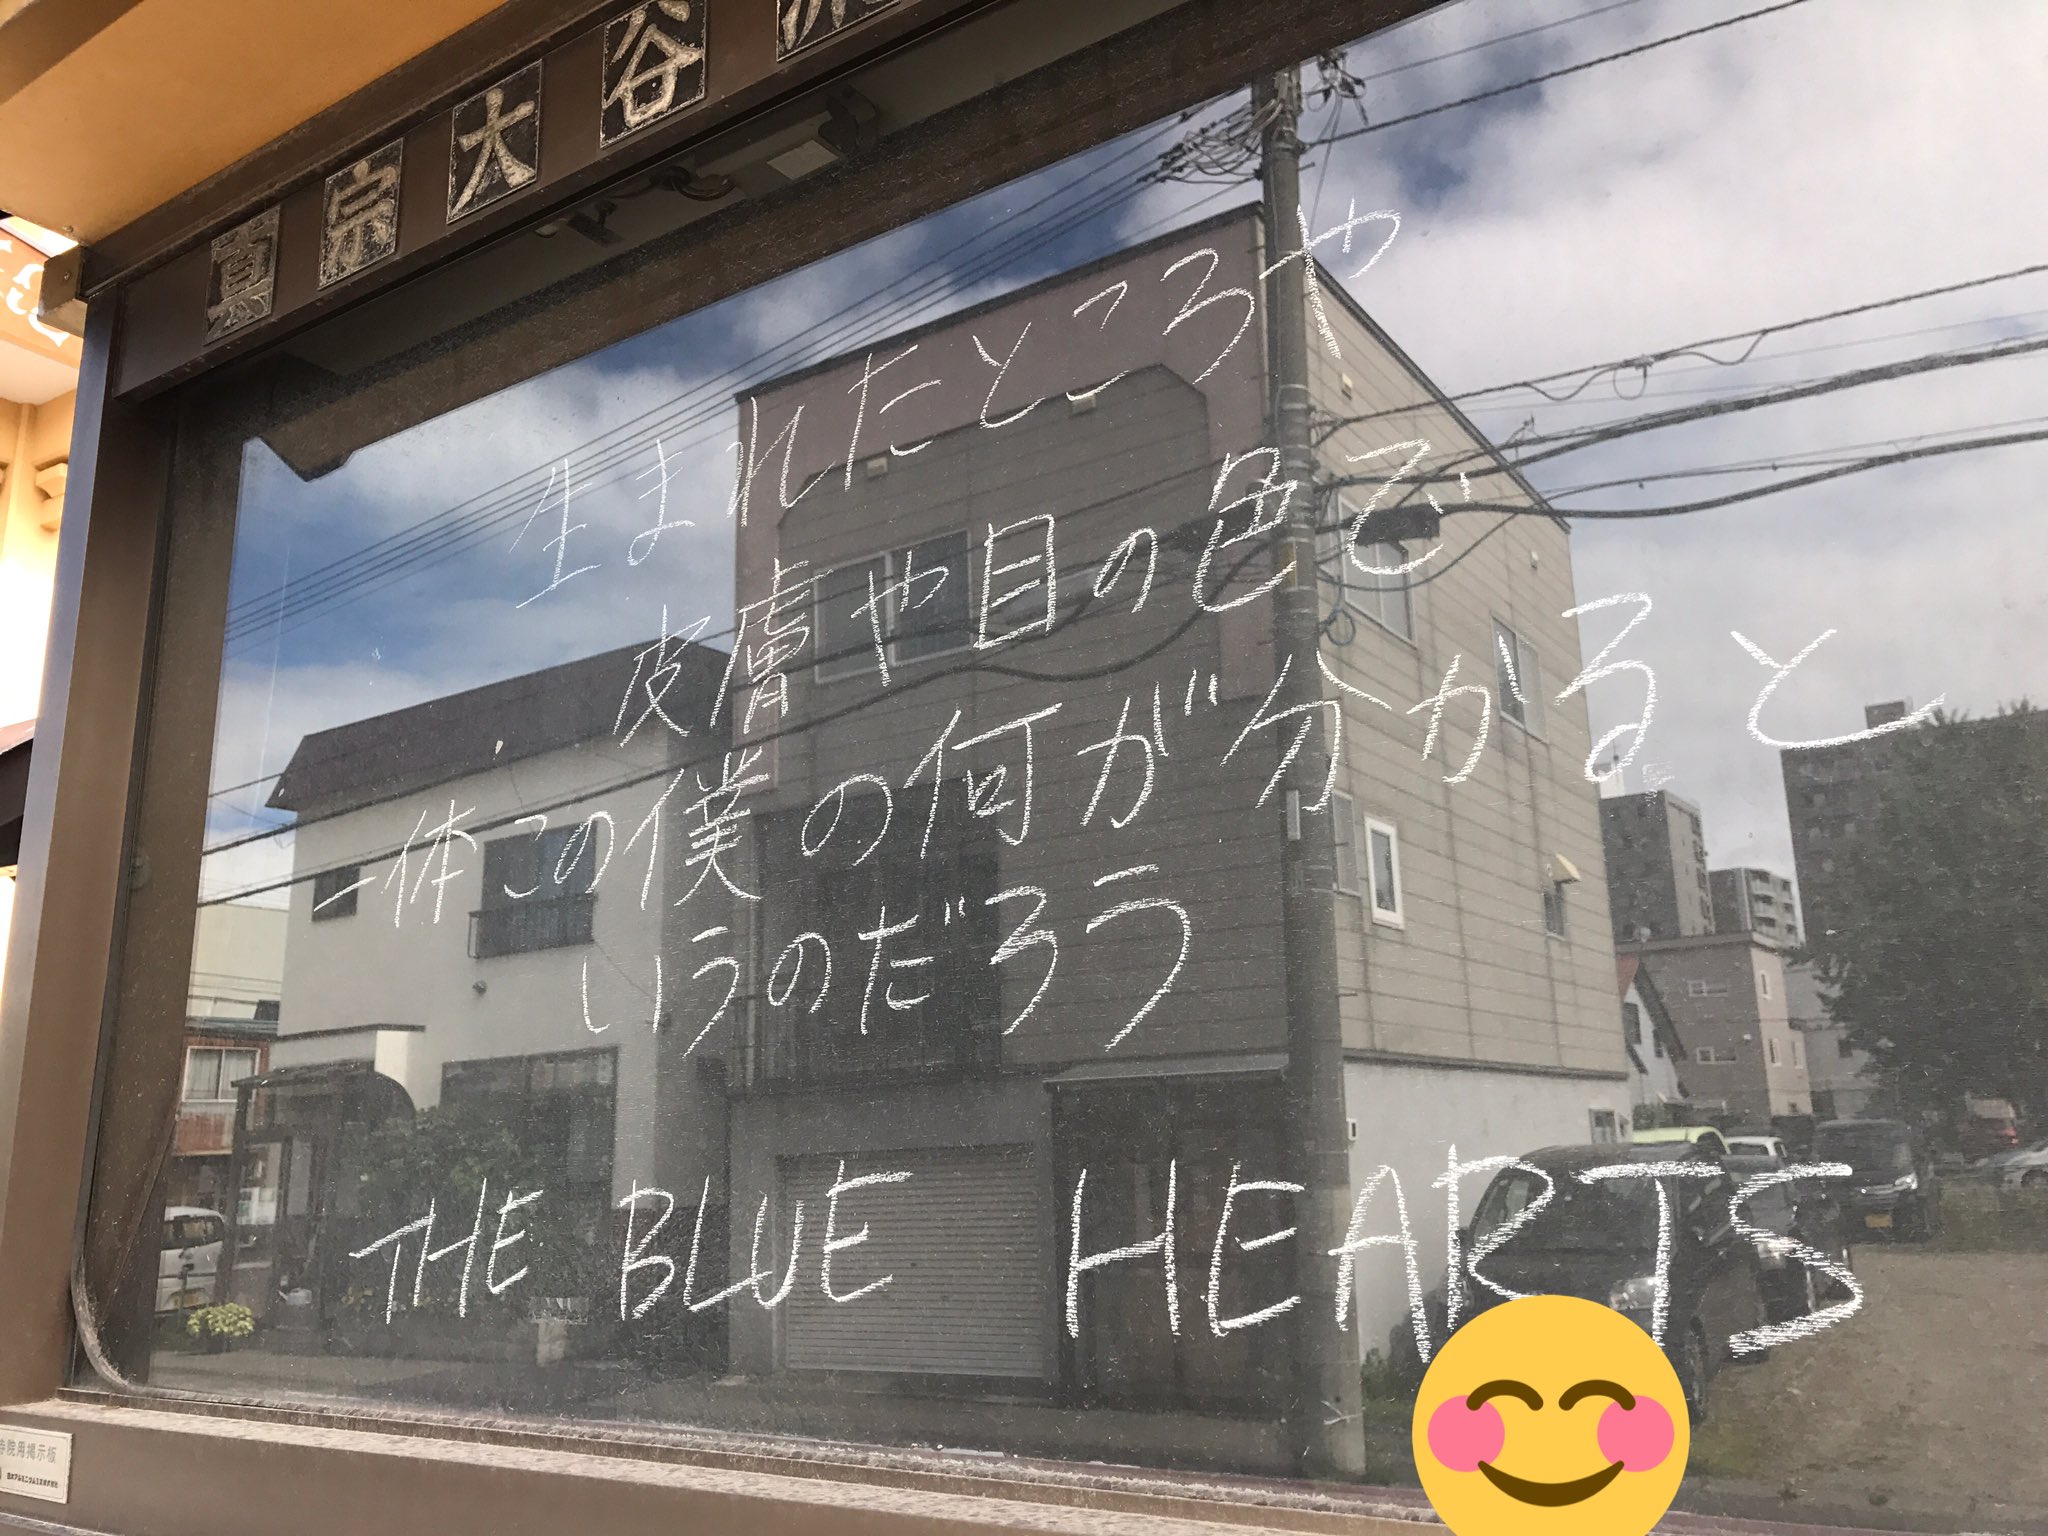 真宗大谷派
生まれたところや
皮膚や目の色で
一体この僕の何が分かると
いうのだろう
THE BLUE HEARTS
寺院用掲示板